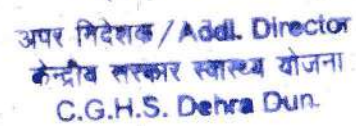 अपर निदेशक / Addl. Director
केन्द्रीय सरकार स्वास्थ्य योजना
C.G.H.S. Dehra Dun.